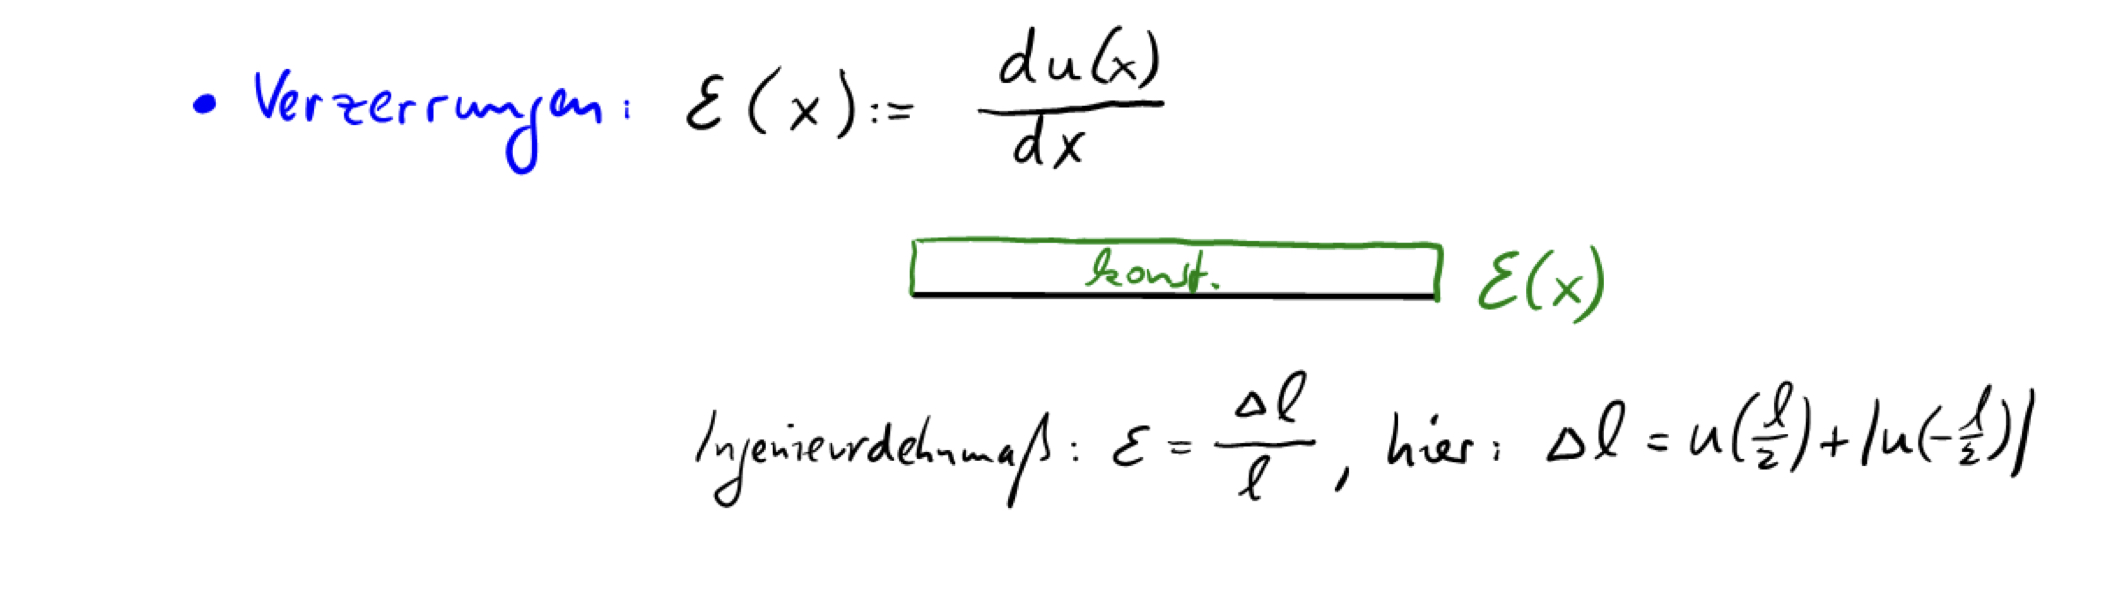 • Verzerrungen: ε(x) := du(x)/dx
konst. ε(x)
Ingenieurdehnmaß: ε = Δl/l, hier: Δl = u(l/2) + |u(-l/2)|